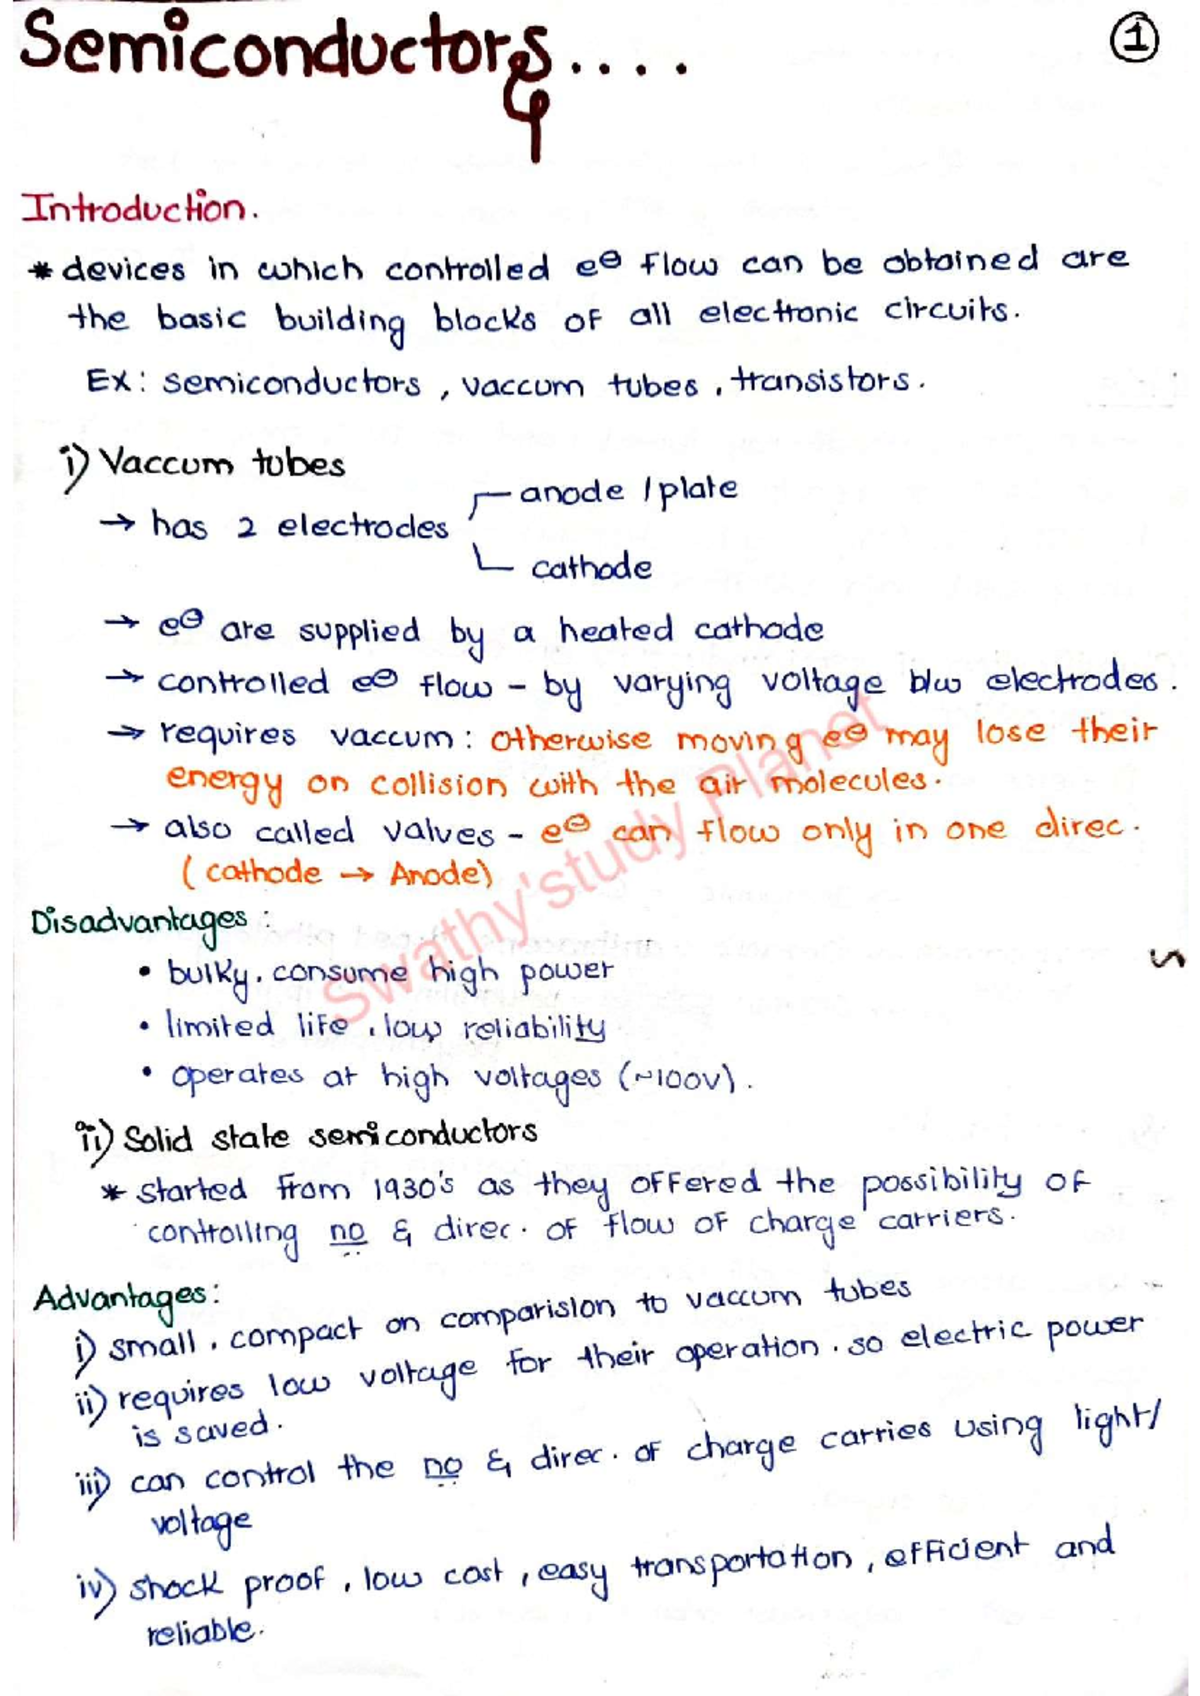 Semiconductors....
1
Introduction.
* devices in which controlled e⊖ flow can be obtained are
the basic building blocks of all electronic circuits.
Ex: semiconductors, vaccum tubes, transistors.
i) Vaccum tubes
anode / plate
→ has 2 electrodes
cathode
→ e⊖ are supplied by a heated cathode
→ controlled e⊖ flow - by varying voltage b/w electrodes.
→ requires vaccum: otherwise moving e⊖ may lose their
energy on collision with the air molecules.
→ also called valves - e⊖ can flow only in one direc.
(cathode → Anode)
Swathy'study Planet
Disadvantages:
• bulky, consume high power
• limited life, low reliability
• operates at high voltages (~100V).
ii) Solid state semiconductors
* started from 1930's as they offered the possibility of
controlling no & direc. of flow of charge carriers.
Advantages:
i) small, compact on comparision to vaccum tubes
ii) requires low voltage for their operation. so electric power
is saved.
iii) can control the no & direc. of charge carries using light/
voltage
iv) shock proof, low cost, easy transportation, efficient and
reliable.